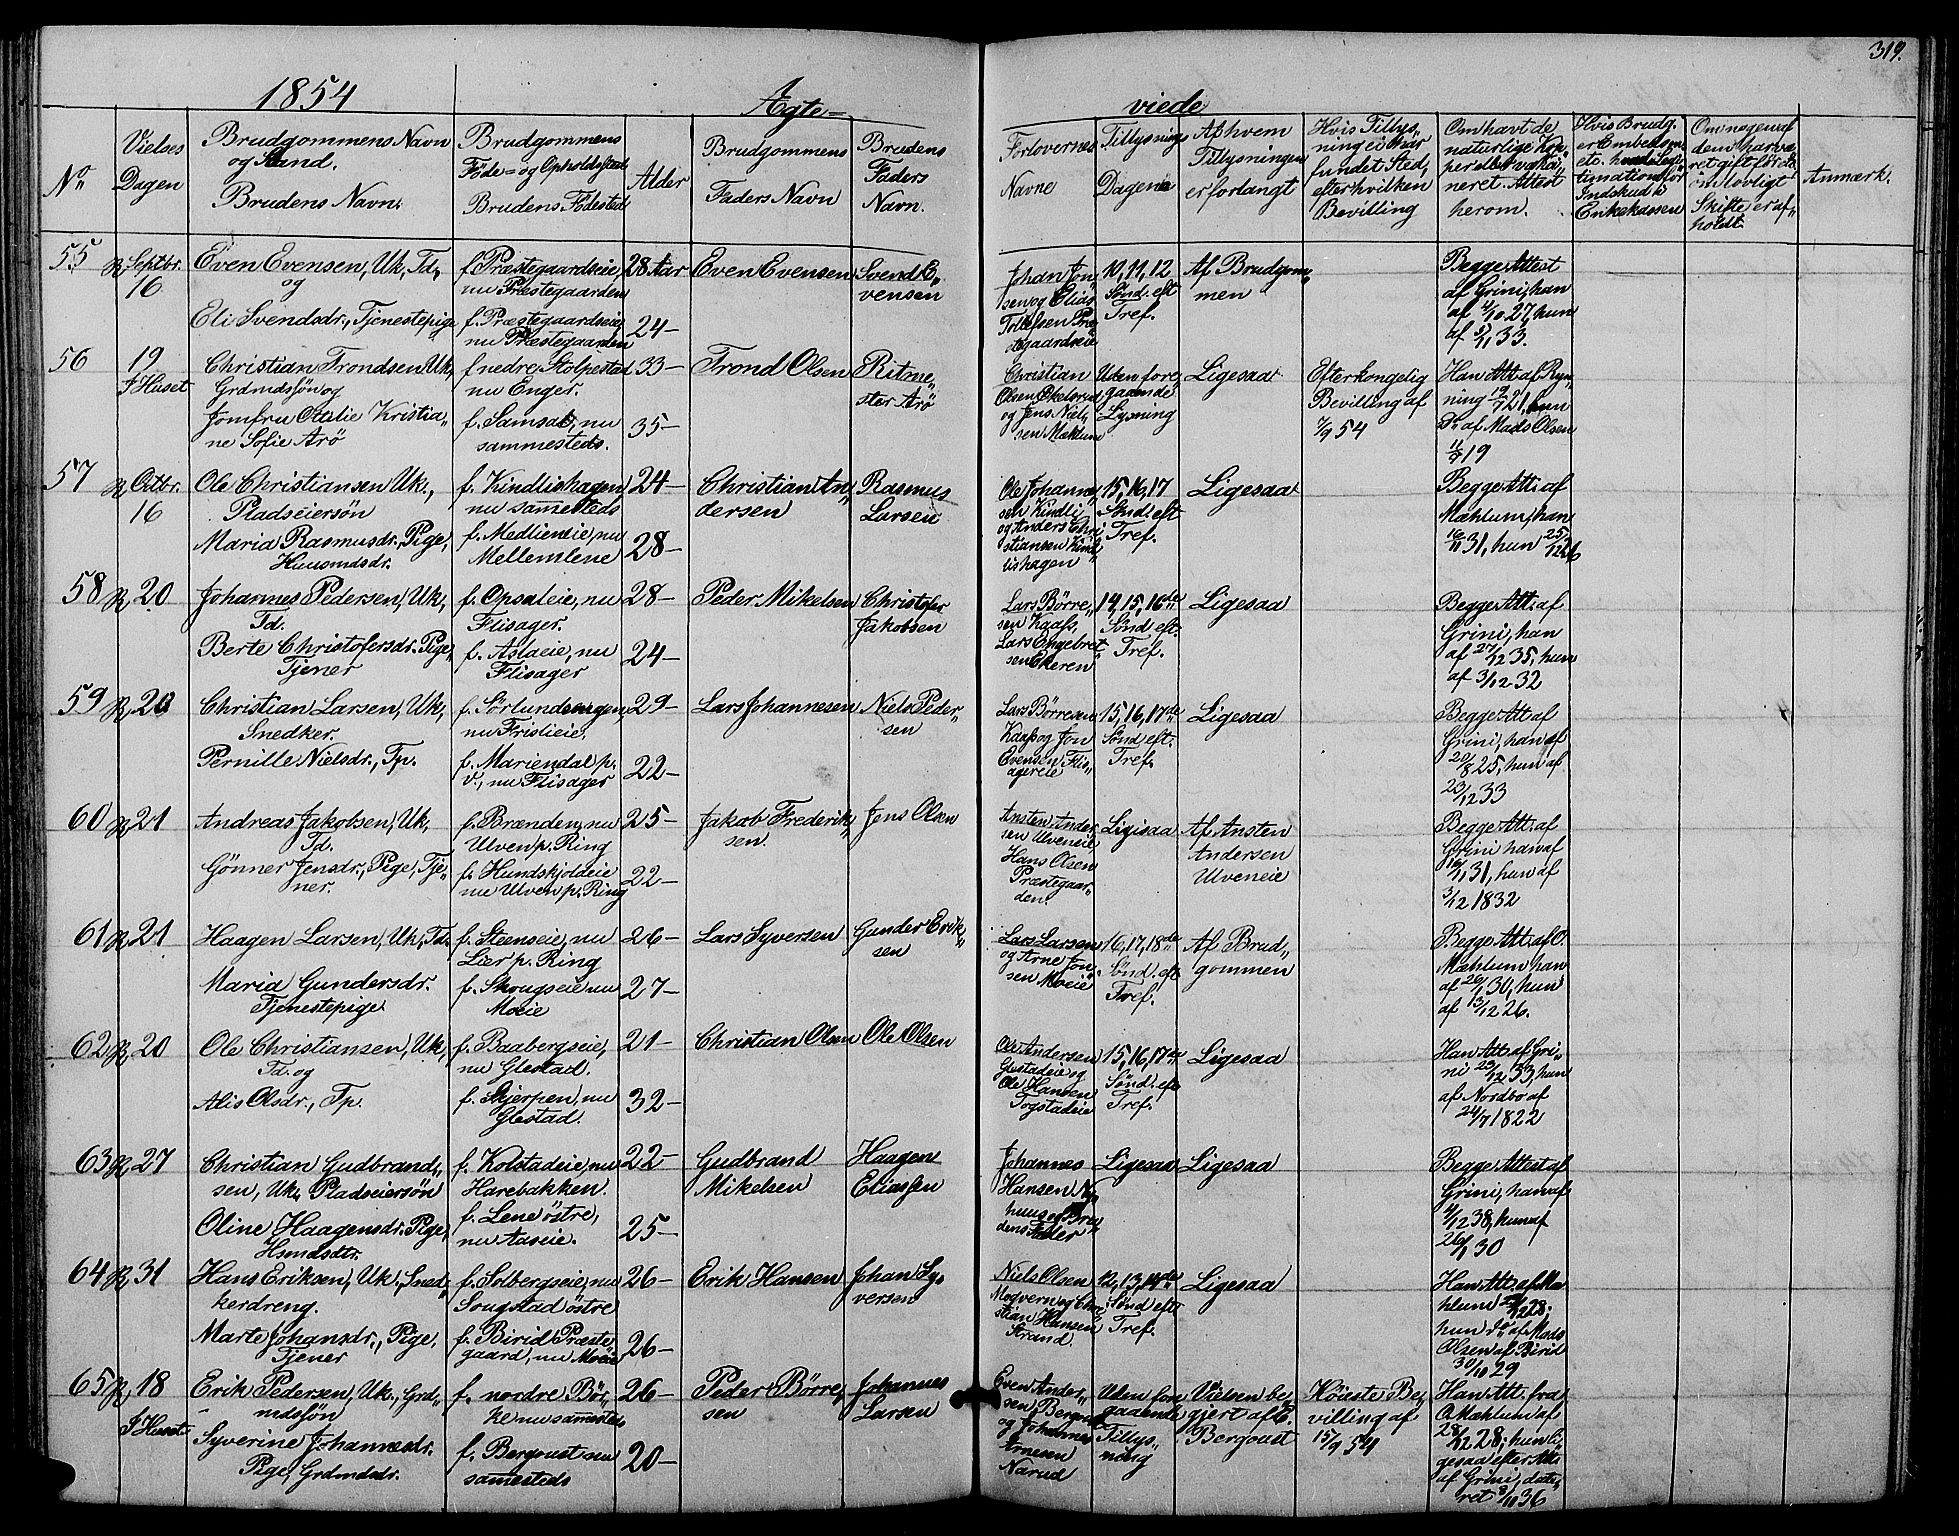 319.
1854
Ægte-
viede
No
Vielses
Dagen
Brudgommens Navn
og Stand.
Brudens Navn.
Brudgommens
Føde- og Opholdssted
Brudens Fødested
Alder
Brudgommens
Faders Navn
Brudens
Faders
Navn.
Forlovernes
Navne
Tillysnings
Dagene
Af hvem
Tillysningen
er forlangt
Hvis Tillys„
ning ei har
fundet Sted,
efter hvilken
Bevilling
Om havt de
naturlige Kop„
per eller vakci„
neret. Attest
herom.
Hvis Brudg.
er Embedsm.
etc. hvad Legi„
timation for
Indskud i
Enkekassen
Om nogen af
dem har væ„
ret gift før &
om lovligt
Skifte er af„
holdt.
Anmærk.
55
Septbr.
16
Even Evensen, Uk, Td,
og
Eli Svendsdr., Tjenestepige
f. Præstegaardseie,
nu Præstegaarden
f. Præstegaardseie
nu Præstegaarden
28 Aar
24-
Even Evensen
Svend E„
vensen
Johan Jon„
sen og Elias
Tollefsen Præ„
stegaardseie
10, 11, 12
Sønd. eft
Tref.
Af Brudgom„
men
Begge Attest
af Grini, han
af 4/10 27, hun
af 5/1 33.
56
19
I Huset
Christian Trondsen Uk,
Grdmdsøn og
Jomfru Ottilie Kristia„
ne Sofie Arø
f nedre Stolpestad
nu Enger.
f. Samsal, nu
sammesteds.
33-
35-
Trond Olsen
Ritme„
ster Arø
Christian
Olsen Økelsrud
og Jens Niel„
sen Mæhlum
Uden fore„
gaaende
Lysning
Ligesaa
Efter kongelig
Bevilling af
7/9 54
Han Att. af Ryn„
ning 19/7 21, hun
Do af Mads Olsen
11/9 19
57
Octbr.
16
Ole Christiansen Uk.,
Pladseiersøn
Maria Rasmusdr. Pige,
Huusmdsdr.
f. Kindlishagen
nu samesteds
f. Medlieneie, nu
Mellemlene
24-
28-
Christian An„
dersen
Rasmus
Larsen
Ole Johanne„
sen Kindli
og Anders Chri„
stiansen Kind„
lishagen
15, 16, 17
Sønd. eft
Tref.
Ligesaa
Begge Att. af
Mæhlum, han
16/11 31, hun 25/12 26
58
20
Johannes Pedersen, Uk,
Td.
Berte Christofersdr. Pige,
Tjener
f. Opsaleie, nu
Flisager.
f. Aslaeie, nu
Flisager
28-
24-
Peder Mikelsen
Christofer
Jakobsen
Lars Børre„
sen Kaass,
Lars Engebret„
sen Ekeren
14, 15, 16de
Sønd eft.
Tref.
Ligesaa
Begge Att. af
Grini, han
af 27/12 35, hun
af 3/12 32
59
20
Christian Larsen, Uk,
Snedker.
Pernille Nielsdr., Tp.
f. Sørlundsengen,
nu Fristieie.
f. Mariendal p.
V., nu Flisager
29-
22-
Lars Johannesen
Niels Peder„
sen
Lars Børresen
Kaass og Jon
Evensen Flis„
agereie
15, 16, 17de
Sønd eft.
Tref.
Ligesaa
Begge Att af
Grini, han af
20/8 25, hun af
23/12 33
60
21
Andreas Jakobsen, Uk,
Td.
Gønner Jensdr., Pige, Tje„
ner.
f. Brænden, nu
Ulven p. Ring
f. Hundskjoldeie
nu Ulven p. Ring
25-
22-
Jakob Frederik„
sen.
Jens Olsen
Ansten Ander„
sen Ulveneie
Hans Olsen
Præstegaar„
den.
Ligesaa
Af Ansten
Andersen
Ulveneie
Begge Att. af
Grini han af
16/1 31, hun af
3/12 1832
61
21
Haagen Larsen, Uk, Td.
Maria Gundersdr.
Tjenestepige
f. Steenseie, nu
Lier p. Ring
f. Skougseie nu
Moeie
26-
27-
Lars Syversen
Gunder Erik„
sen
Lars Larsen
og Arne Jon„
sen Moeie
16, 17, 18de
Sønd. eft
Tref.
Af Brud„
gommen
Begge Att. af O.
Mæhlum han
af 26/1 30, hun
af 13/12 26.
62
20
Ole Christiansen, Uk,
Td. og
Alis Olsdr., Tp.
f. Baabergseie,
nu Glestad.
f. Skjerpen, nu
Glestad.
21-
32-
Christian Olsen
Ole Olsen
Ole Andersen
Glestadeie og
Ole Hansen
Togstadeie
15, 16, 17de
Sønd. eft
Tref.
Ligesaa
Han Att. af Gri„
ni 23/12 33, hun
af Nordbo af
24/7 1822
63
27
Christian Gudbrand„
sen, Uk, Pladseiersøn
Oline Haagensdr. Pige,
Hsmdsdtr.
f. Kolstadeie, nu
Harebakken.
f. Lene østre,
nu Aaseie.
22-
25-
Gudbrand
Mikelsen
Haagen
Eliassen
Johannes
Hansen Ny„
huus og Bru„
dens Fader
Ligesaa
Ligesaa
Begge Attest af
Grini, han af
4/12 38, hun af
26/1 30
64
31
Hans Eriksen, Uk., Sned„
kerdreng.
Marte Johansdr., Pige,
Tjener
f. Solbergseie, nu
Sougstad østre
f. Birid Præste„
gaard, nu Moeie
26-
26-
Erik Hansen
Johan Sy„
versen
Niels Olsen
Mogvern og Chri„
stian Hansen
Strand.
12, 13, 14de
Sønd eft
Tref.
Ligesaa
Han Att. af Mæ„
hlum 28;
hun do af Mads
Olsen af Birid
30/10 29
65
18
I Huset
Erik Pedersen, Uk, Grd„
mdsøn
Syverine Johannesdr.
Pige, Grdmdsdr.
f. nordre Bør„
ke nu samesteds
f. Bergoust nu
samesteds
26-
20-
Peder Børre„
sen
Johannes
Larsen
Even Ander„
sen Bergoust
og Johannes
Arnesen
Narud
Uden fore„
gaaende
Tillys„
ning
Vielsen be„
gjert af E.
Bergoust
Høieste Be„
villing af
15/9 54
Han Att. fra
O. Mæhlum af
28/12 28; hun li„
gesaa efter Att.
af Grini, date„
ret 8/11 36